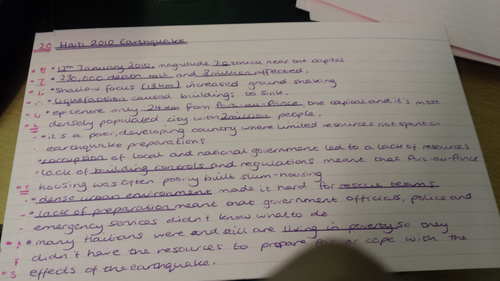 20 Haiti 2010 Earthquake
• 12th January 2010, magnitude 7.0 struck near the capital
• 230,000 death toll and 3 million affected.
• Shallow focus (13km) increased ground shaking
• liquefaction caused buildings to sink.
• epicentre only 24km from Port-au-Prince, the capital and it's most
densely populated city with 2million people.
• it's a poor, developing country where limited resources not spent on
earthquake preparations
• corruption of local and national government led to a lack of resources
• lack of building controls and regulations meant that Port-au-Prince
housing was often poorly built slum-housing
• dense urban environment made it hard for rescue teams
• lack of preparation meant that government officials, police and
emergency services didn't know what to do.
• many Haitians were and still are living in poverty so they
didn't have the resources to prepare for or cope with the
effects of the earthquake.